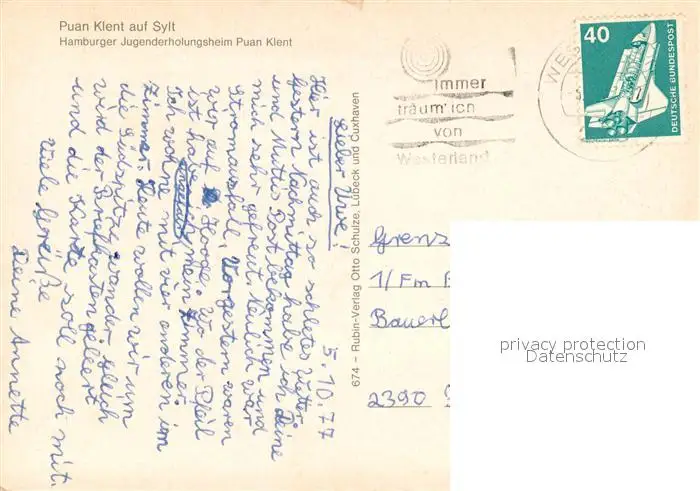 Puan Klent auf Sylt
Hamburger Jugenderholungsheim Puan Klent
5.10.77
Lieber Uwe!
Hier ist auch so schlechtes Wetter.
Gestern Nachmittag habe ich Deine
und Muttis Post bekommen und
mich sehr gefreut. Neulich war
Stromausfall. Vorgestern waren
wir auf Hooge. Wo der Pfeil
ist habe mein Zimmer.
Ich wohne mit vier anderen im
Zimmer. Heute wollen wir um
die Südspitze wandern. Gleich
wird der Briefkasten geleert
und die Karte soll noch mit.
Viele Grüße
Deine Annette
674 – Rubin-Verlag Otto Schulze, Lübeck und Cuxhaven
immer
träum' ich
von
Westerland
WES
40
DEUTSCHE BUNDESPOST
Grenz
1/Fm
Bauerl
2390
privacy protection
Datenschutz